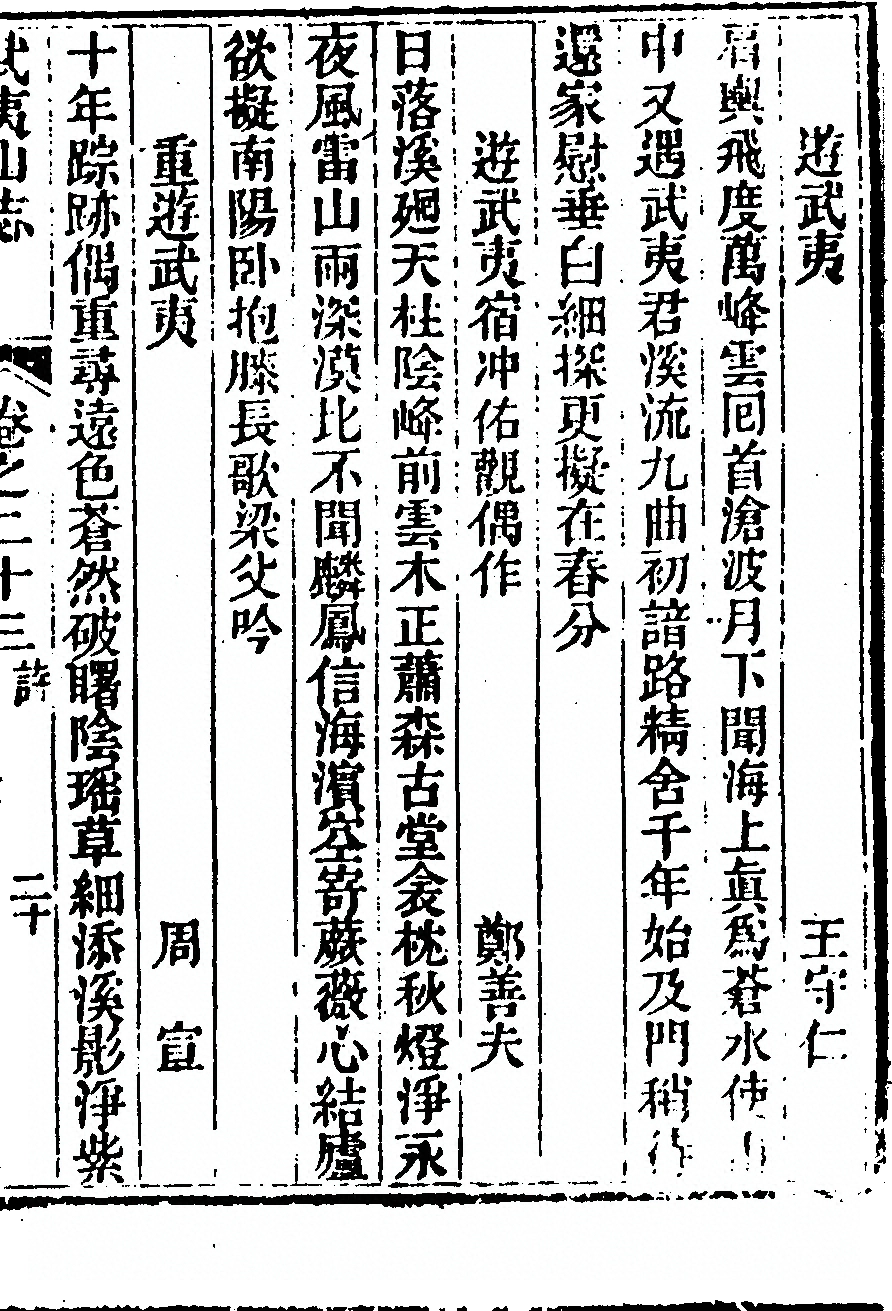 遊武夷 王守仁
肩輿飛度萬峰雲回首滄波月下聞海上眞爲蒼水使山
中又遇武夷君溪流九曲初諳路精舍千年始及門稍待
還家慰垂白細探更擬在春分
遊武夷宿冲佑觀偶作 鄭善夫
日落溪廻天柱陰峰前雲木正蕭森古堂衾枕秋燈淨永
夜風雷山雨深漠北不聞麟鳳信海濵空嵜蕨薇心結廬
欲擬南陽卧抱膝長歌梁父吟
重遊武夷 周宣
十年踪跡偶重尋遠色蒼然破曙陰瑶草細添溪影淨紫
武夷山志 卷之二十三 詩 二十